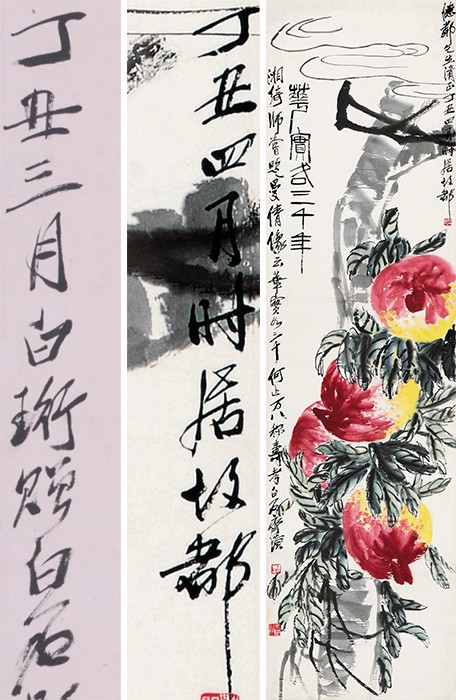 丁丑三月白珩贈白石
丁丑四月时居故都
先生清正丁丑四月时居故都
華實各三千年
湘綺師嘗題曼倩像云華實各三千何止万八称壽考白石齊璜